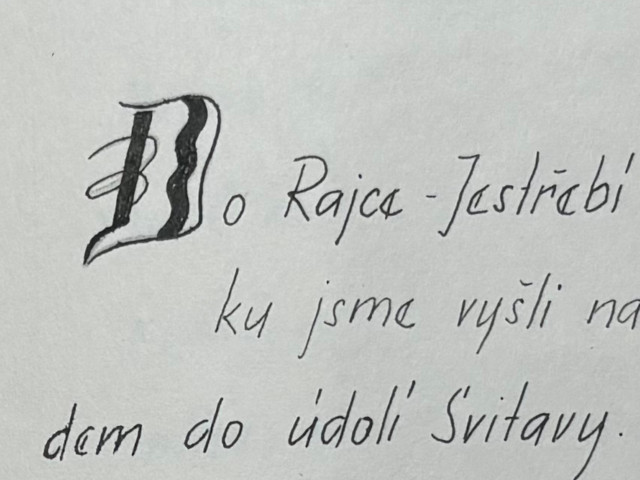 Do Rajce-Jestřebí
ku jsme vyšli na
dem do údolí Svitavy.